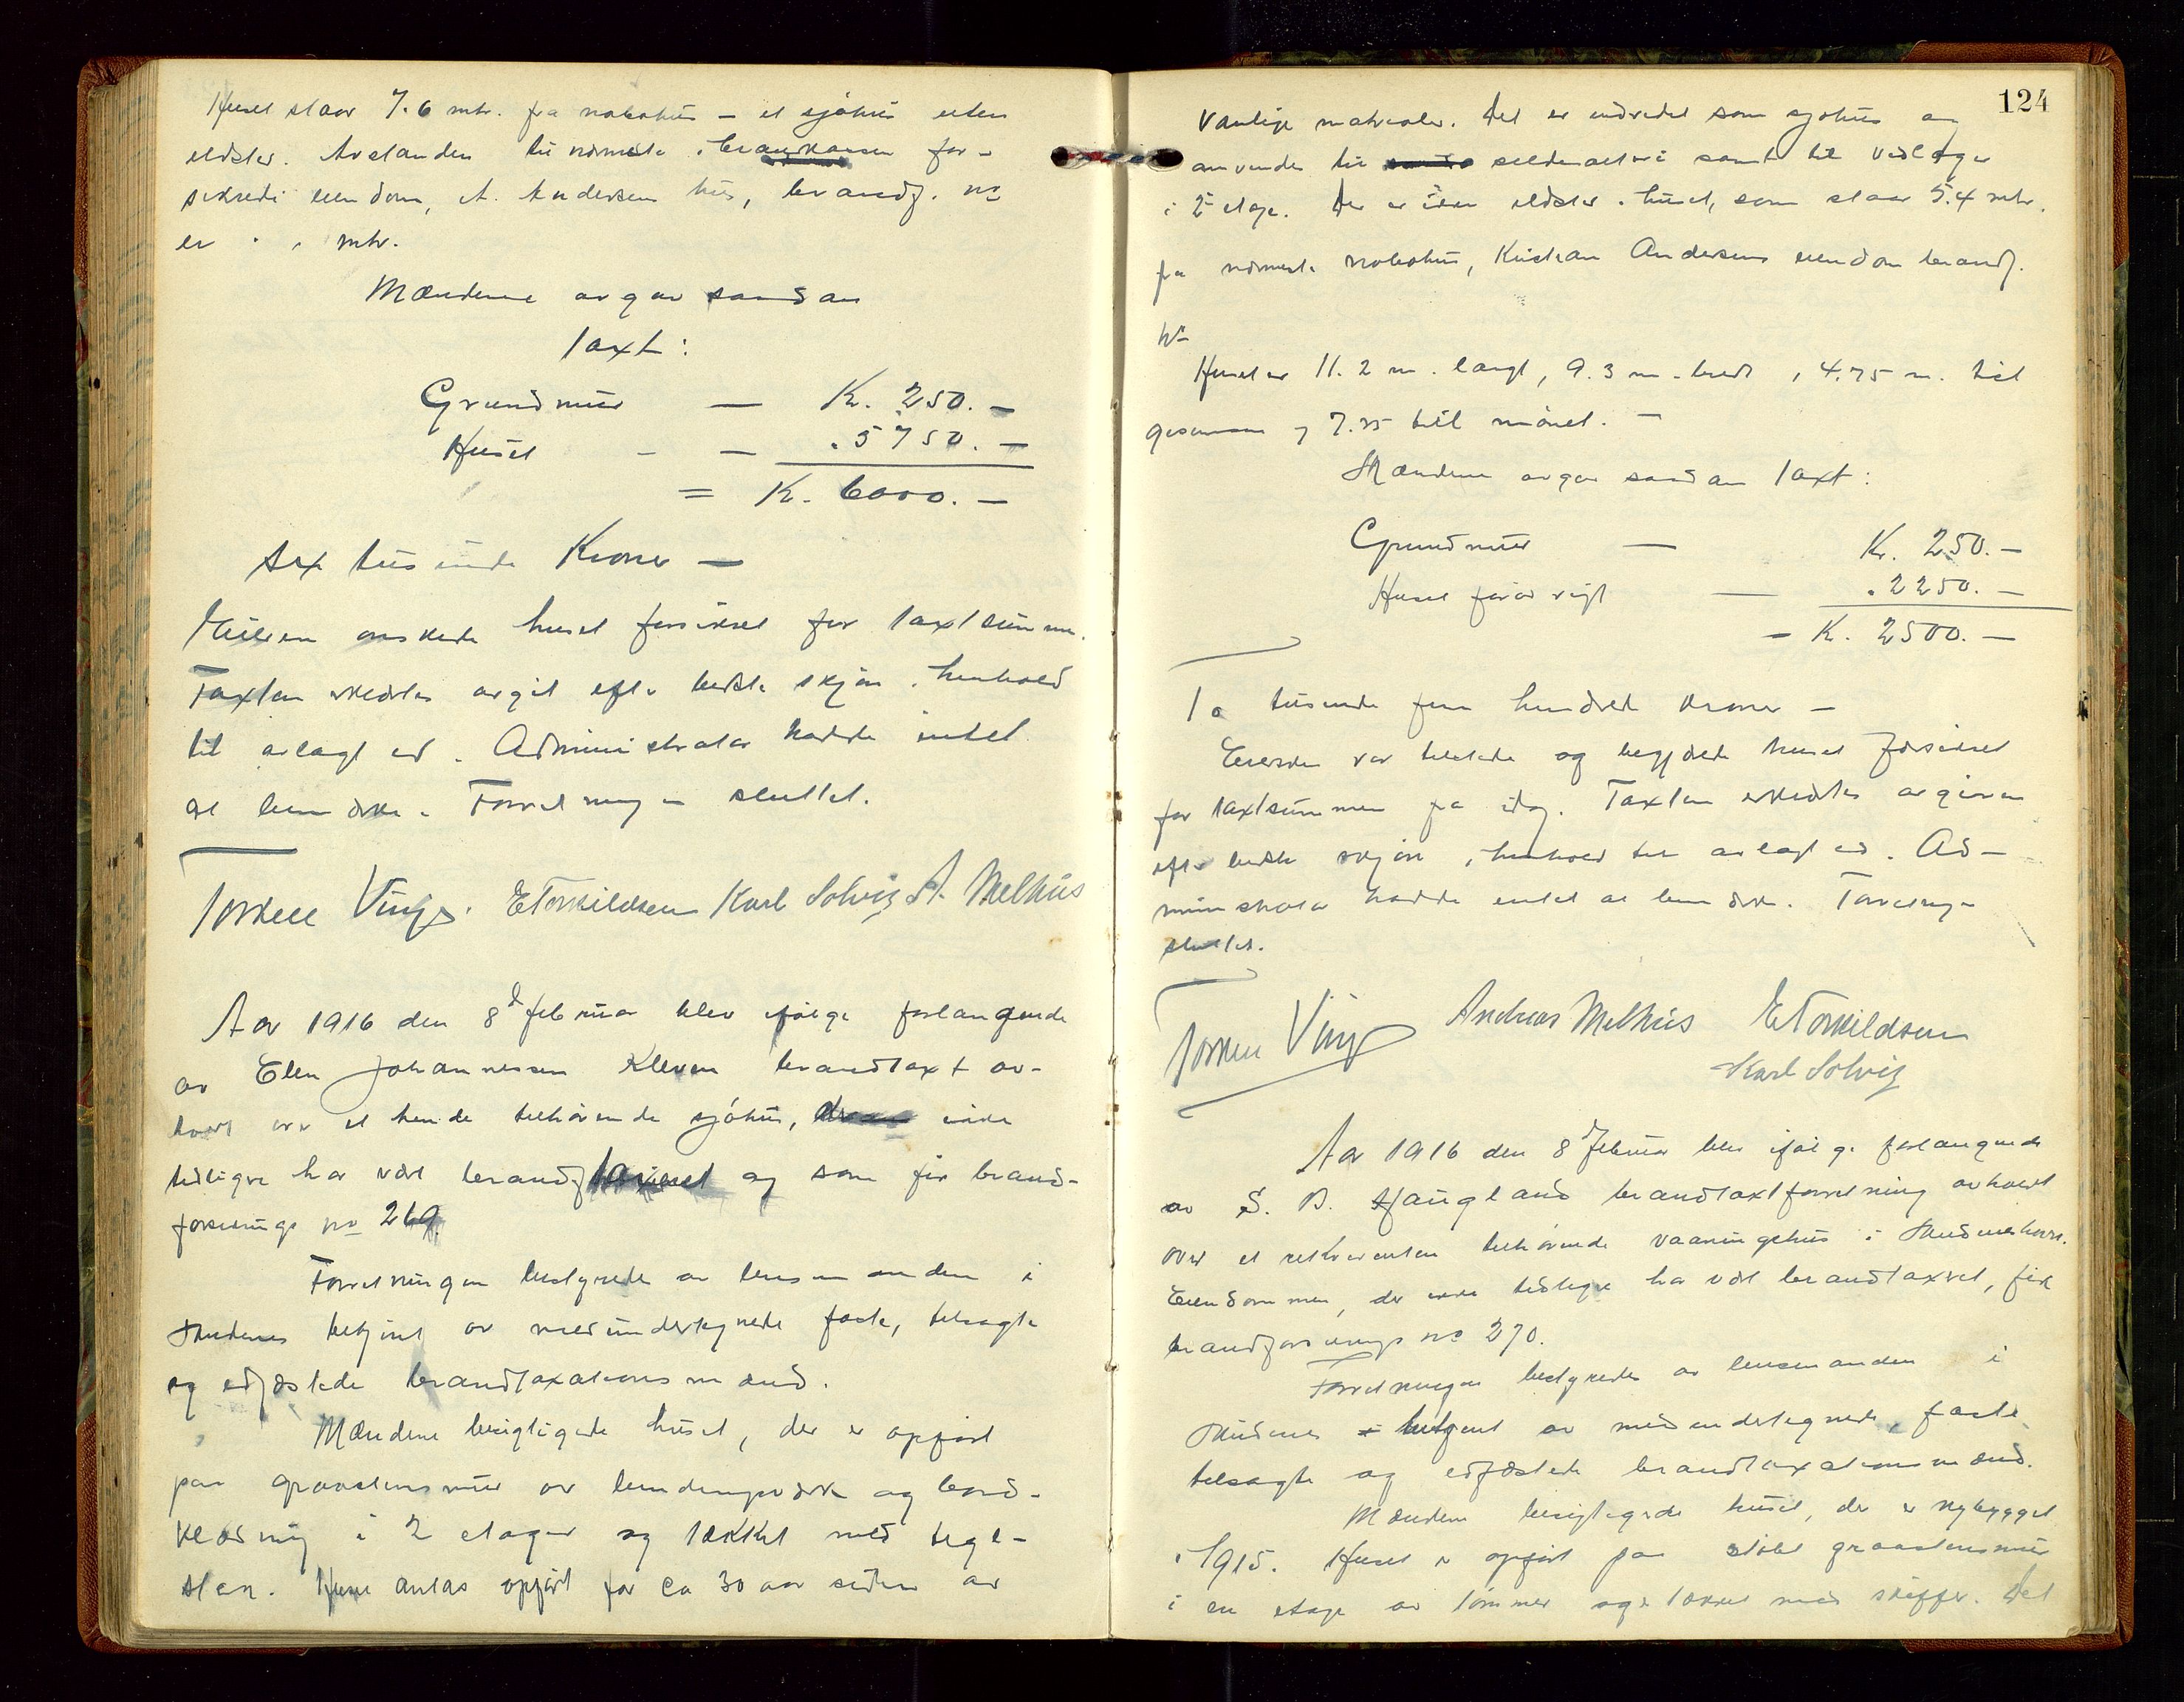 Huset staar 7.6 mtr. fra nabohus – et sjøhus uten
ildsted. Avstanden til nærmeste i brandkassen for-
sikrede eiendom, A. Andersens hus, brandf. no
er mtr.
Mændene avgav saadan
Taxt:
Grundmur — Kr. 250.—
Huset - — " 5750.—
= Kr. 6000.—
Sex tusinde Kroner —
Eieren ønskede huset forsikret for taxtsummen.
Taxten erklærtes avgit efter bedste skjøn i henhold
til avlagt ed. Administrator hadde intet
at bemærke. Forretningen sluttet.
Torkell Vinje. E Torkildsen Karl Solvig A. Melhus
Aar 1916 den 8d februar blev ifølge forlangende
av Elen Johannessen Kleven brandtaxt av-
holdt over et hende tilhørende sjøhus, ikke
tidligere har vært brandtaxeret og som fik brand-
forsikrings no 269.
Forretningen bestyredes av lensmanden i
Skudenes betjent av medundertegnede faste, tilsagte
og edfæstede brandtaxationsmænd.
Mændene besigtigede huset, der er opført
paa graastensmur av bindingsværk og bord-
klædning i 2 etager og tækket med tegl-
sten. Huset antas opført for ca 30 aar siden av
124
vanlige materialer. Det er indredet som sjøhus og
anvendes til sildesalteri samt til vedlager
i 2den etage. Der er ikke ildsted i huset, som staar 5.4 mtr.
fra nærmeste nabohus, Kristian Andersens eiendom brandf.
No
Huset er 11.2 m. langt, 9.3 m. bredt, 4.75 m. til
gesimsen og 7.75 til mønet. —
Mændene avgav saadan Taxt:
Grundmur — Kr. 250.—
Huset forøvrigt — " 2250.—
= Kr. 2500.—
To tusinde fem hundrede kroner —
Eiersken var tilstede og begjærede huset forsikret
for taxtsummen fra idag. Taxten erklærtes avgiven
efter bedste skjøn i henhold til avlagt ed. Ad-
ministrator hadde intet at bemærke. Forretningen
sluttet.
Torkell Vinje Andreas Melhus E Torkildsen
Karl Solvig
Aar 1916 den 8d februar blev ifølge forlangende
av S. B. Haugland brandtaxtforretning avholdt
over et rekvirenten tilhørende vaaningshus i Skudeneshavn.
Eiendommen, der ikke tidligere har vært brandtaxeret, fik
brandforsikrings no 270.
Forretningen bestyredes av lensmanden i
Skudenes betjent av medundertegnede, faste
tilsagte og edfæstede brandtaxationsmænd.
Mændene besigtigede huset, der er nybygget
i 1915. Huset er opført paa støbt graastensmur
i en etage av tømmer og er tækket med skiffer. Det